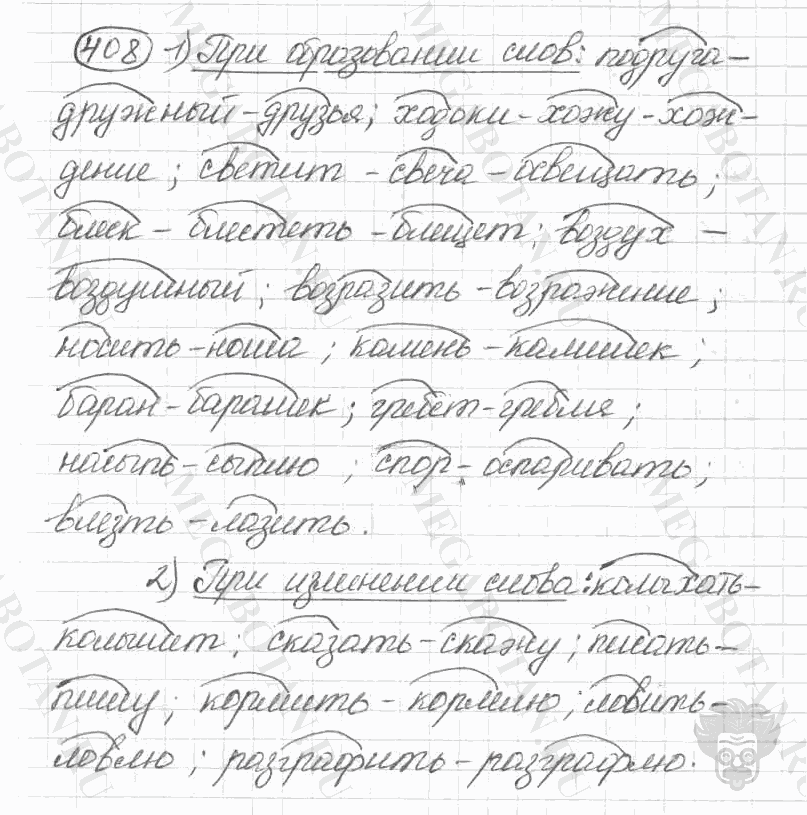 408 1) При образовании слов: подруга-
дружный-друзья; ходоки-хожу-хож-
дение; светит-свеча-освещать;
блеск-блестеть-блещет; воздух-
воздушный; возразить-возражение;
носить-ноша; камень-камешек;
баран-барашек; гребёт-гребля;
насыпь-сыплю; спор-оспаривать;
влезть-лазить.
2) При изменении слова: колыхать-
колышет; сказать-скажу; писать-
пишу; кормить-кормлю; ловить-
ловлю; разграфить-разграфлю.
MEGABOTAN.RU